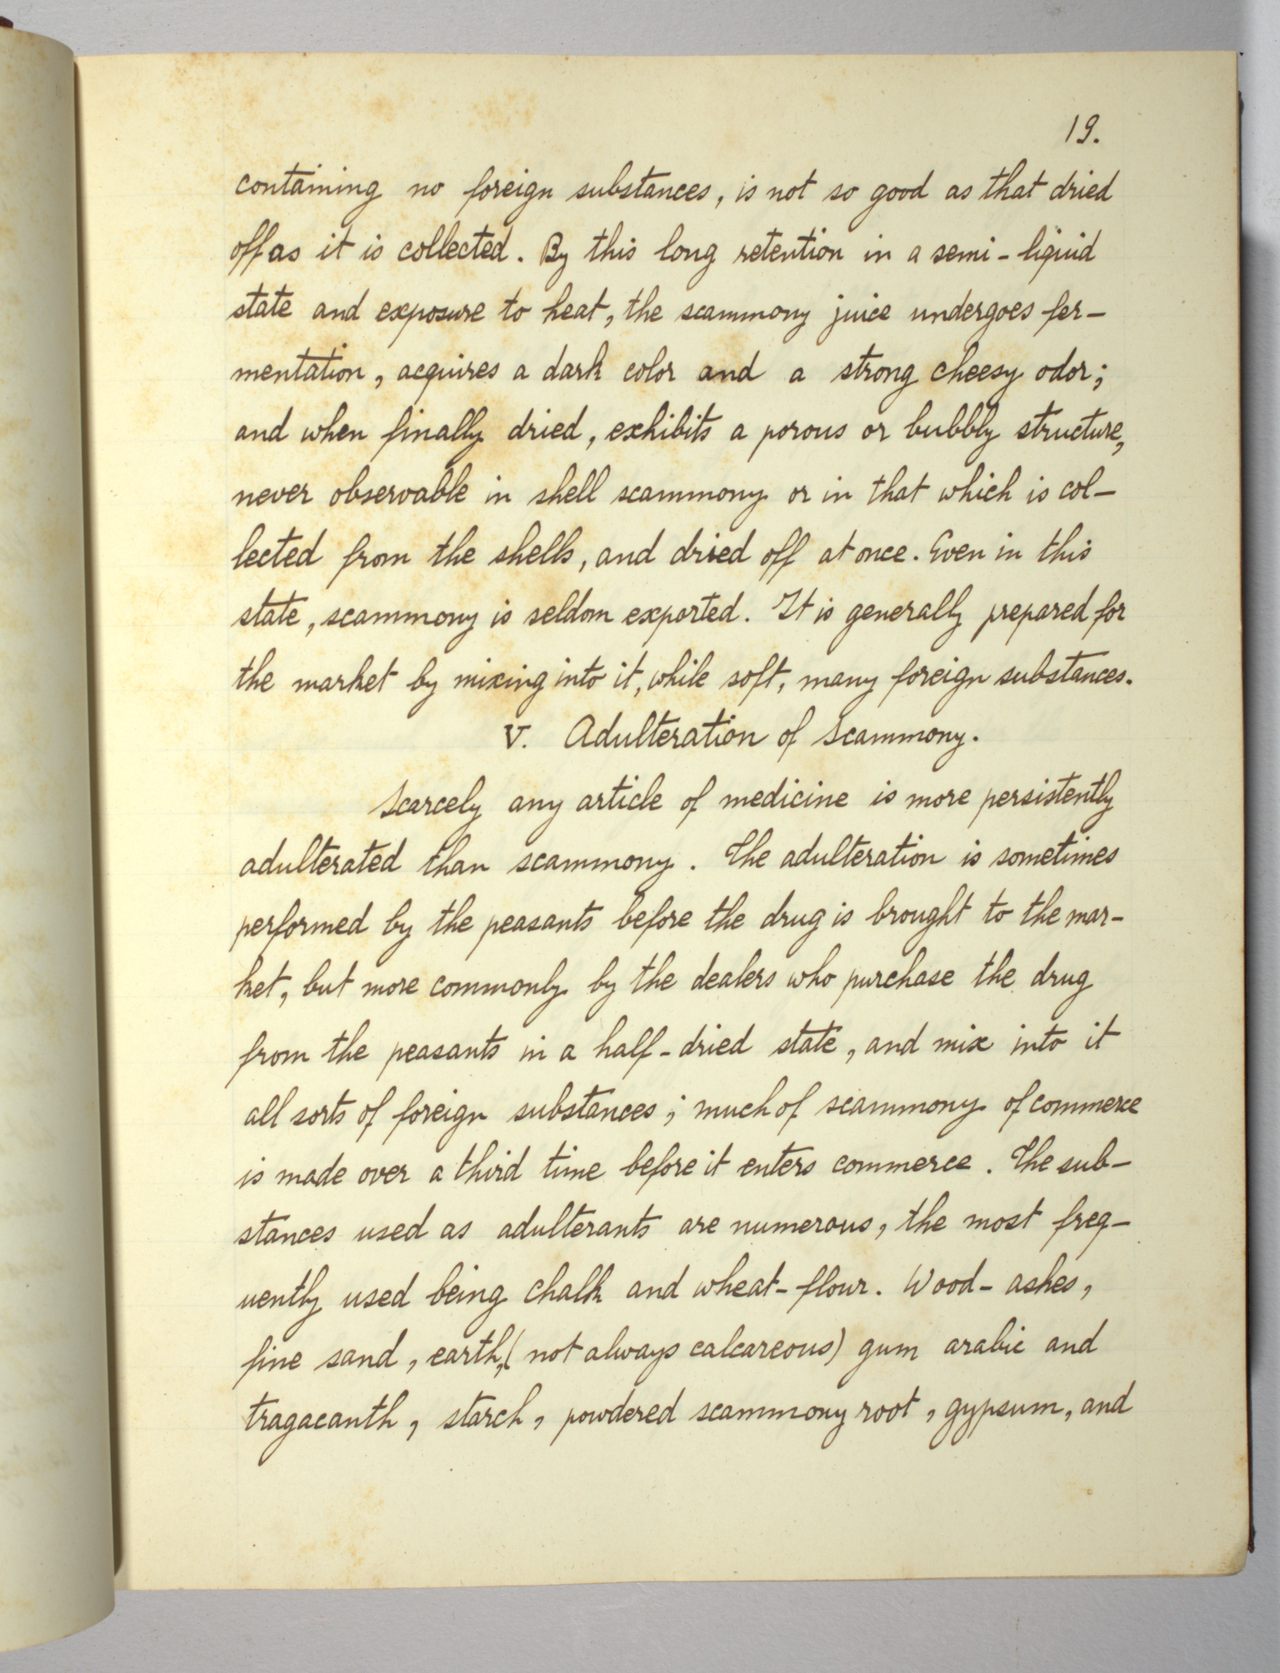 19.
containing no foreign substances, is not so good as that dried
off as it is collected. By this long retention in a semi-liquid
state and exposure to heat, the scammony juice undergoes fer-
mentation, acquires a dark color and a strong cheesy odor;
and when finally dried, exhibits a porous or bubbly structure,
never observable in shell scammony or in that which is col-
lected from the shells, and dried off at once. Even in this
state, scammony is seldom exported. It is generally prepared for
the market by mixing into it, while soft, many foreign substances.
V. Adulteration of Scammony.
Scarcely any article of medicine is more persistently
adulterated than scammony. The adulteration is sometimes
performed by the peasants before the drug is brought to the mar-
ket, but more commonly by the dealers who purchase the drug
from the peasants in a half-dried state, and mix into it
all sorts of foreign substances; much of scammony of commerce
is made over a third time before it enters commerce. The sub-
stances used as adulterants are numerous, the most freq-
uently used being chalk and wheat-flour. Wood-ashes,
fine sand, earth, (not always calcareous) gum arabic and
tragacanth, starch, powdered scammony root, gypsum, and